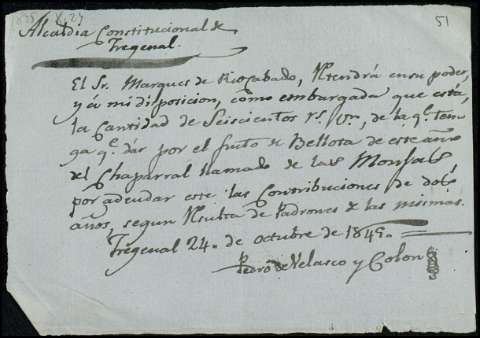 51
Alcaldia Constitucional de
Fregenal.
El Sr. Marques de Riocabado, Retendrá en su poder,
y á mi disposicion, como embargada que está,
la Cantidad de Seiscientos rs. vn, de la qe. ten-
ga qe. dar por el fruto de Bellota de este año
del Chaparral llamado de las
por adeudar este las Contribuciones de dos
años, segun Resulta de Padrones de las mismas.
Fregenal 24. de octubre de 1849.
Pedro de Velasco y Colon